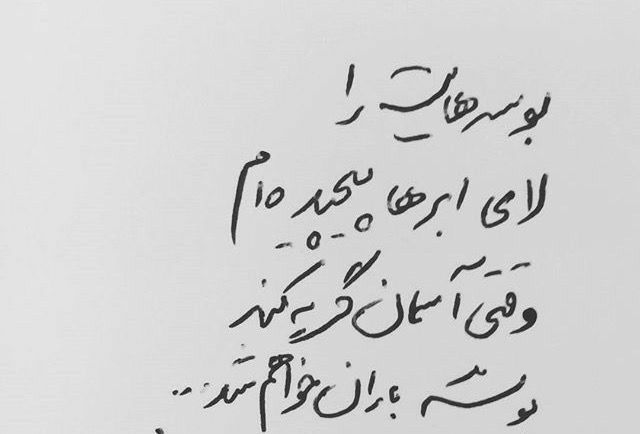 بوسه‌هایت را
لای ابرها پیچیده‌ام
وقتی آسمان گریه کند
بوسه باران خواهم شد...